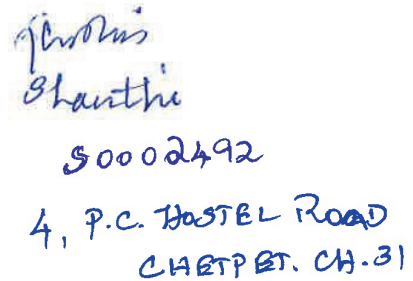 Shanthi
S0002492
4, P.C. HOSTEL ROAD
CHETPET. CH.31